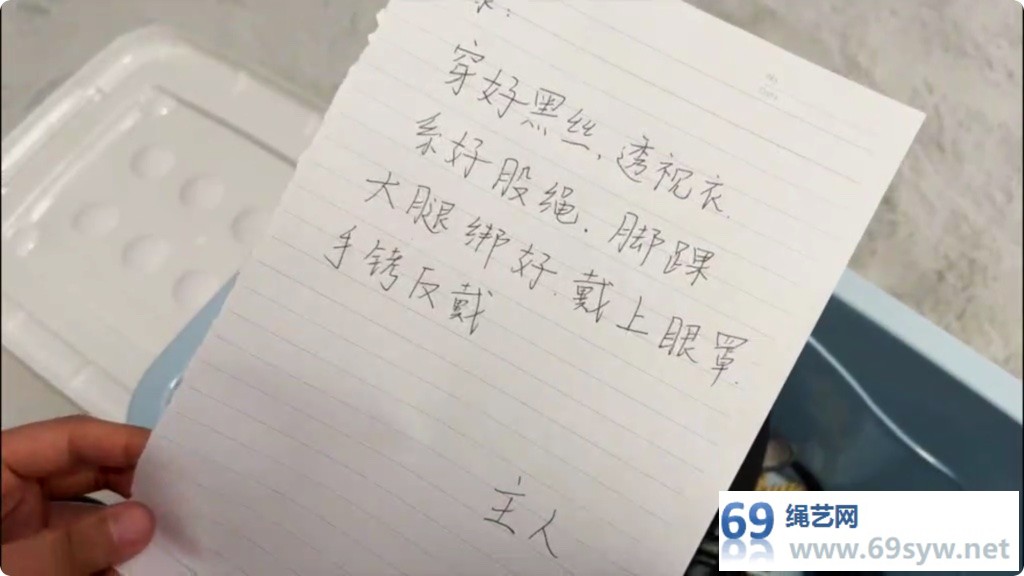 穿好黑丝.透视衣.
系好股绳.脚踝
大腿绑好.戴上眼罩.
手铐反戴
主人
69 绳艺网
www.69syw.net